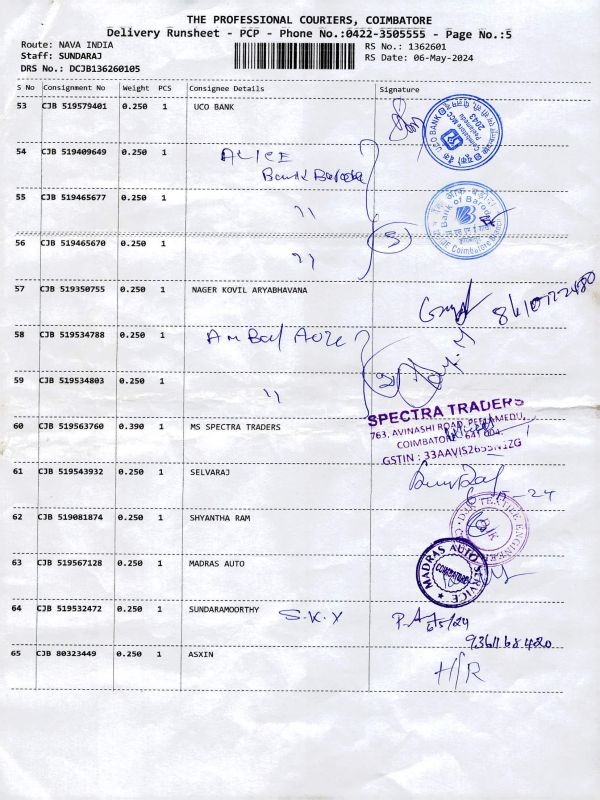 THE PROFESSIONAL COURIERS, COIMBATORE
Delivery Runsheet - PCP - Phone No.:0422-3505555 - Page No.:5
Route: NAVA INDIA
Staff: SUNDARAJ
DRS No.: DCJB136260105
RS No.: 1362601
RS Date: 06-May-2024
S No Consignment No Weight PCS Consignee Details Signature
53 CJB 519579401 0.250 1 UCO BANK
54 CJB 519409649 0.250 1 ALICE
Bank Baroda
55 CJB 519465677 0.250 1 "
56 CJB 519465670 0.250 1 "
3
Bank of Baroda
57 CJB 519350755 0.250 1 NAGER KOVIL ARYABHAVANA
58 CJB 519534788 0.250 1
59 CJB 519534803 0.250 1 "
60 CJB 519563760 0.390 1 MS SPECTRA TRADERS
SPECTRA TRADERS
763, AVINASHI ROAD, PEELAMEDU,
COIMBATORE - 641 004.
61 CJB 519543932 0.250 1 SELVARAJ
62 CJB 519081874 0.250 1 SHYANTHA RAM
63 CJB 519567128 0.250 1 MADRAS AUTO
MADRAS AUTO SERVICE
COIMBATORE
64 CJB 519532472 0.250 1 SUNDARAMOORTHY S.K.Y
6/5/24
65 CJB 80323449 0.250 1 ASXIN
H/R